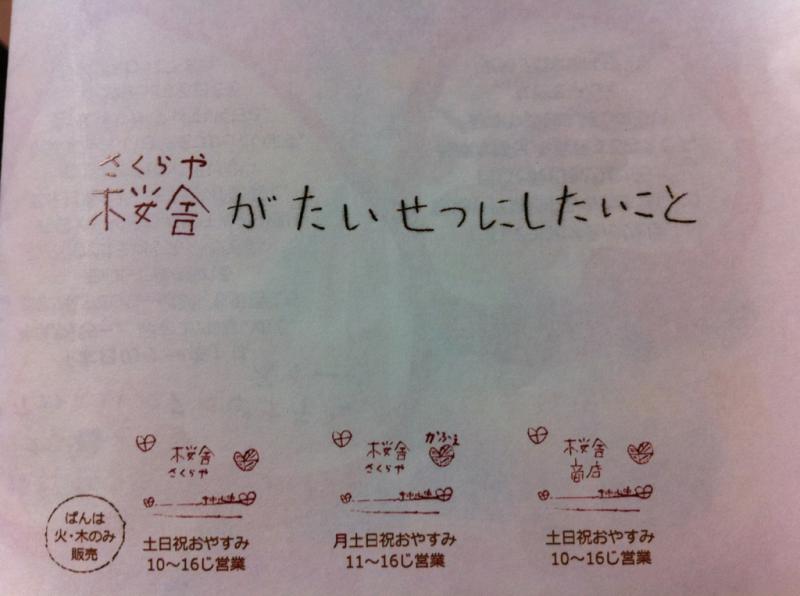 さくらや
桜舎がたいせつにしたいこと
桜舎
さくらや
土日祝おやすみ
10〜16じ営業
ぱんは
火・木のみ
販売
かふぇ
桜舎
さくらや
月土日祝おやすみ
11〜16じ営業
桜舎
商店
土日祝おやすみ
10〜16じ営業